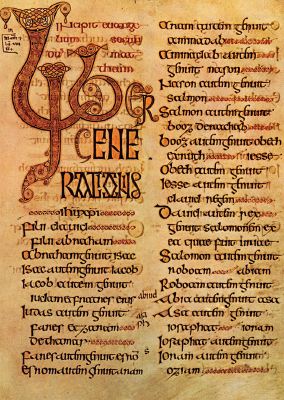 Incipit euange
matheum
Liber
GENE
RATIONIS
ihu xpi
Filii dauid
filii abraham
Abraham autem genuit isac
Isac autem genuit iacob
Iacob autem genuit
iudam et fratres eius
Iudas autem genuit
fares et zaram
de thamar
Fares autem genuit esrom
Esrom autem genuit aram
Aram autem genuit
aminadab
Aminadab autem
genuit naason
Nason autem genuit
Salmon
Salmon autem genuit
booz de rachab
booz autem genuit obeth
exruth iesse
Iesse autem genuit
dauid regem
Dauid autem rex
genuit salomonem
ex ea quae fuit uriae
Salomon autem genuit
roboam abiam
Roboam autem genuit
Abia autem genuit asa
Asa autem genuit
iosaphat ioram
Iosaphat autem genuit
Ioram autem genuit
oziam